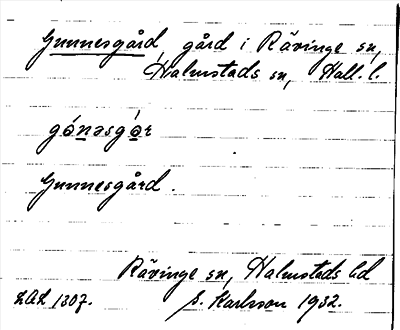 Gunnesgård, gård i Rävinge sn,
Halmstads sn, Hall. l.
gónəsgór
Gunnesgård.
Rävinge sn, Halmstads hd
LAL 1307. S. Karlsson 1932.